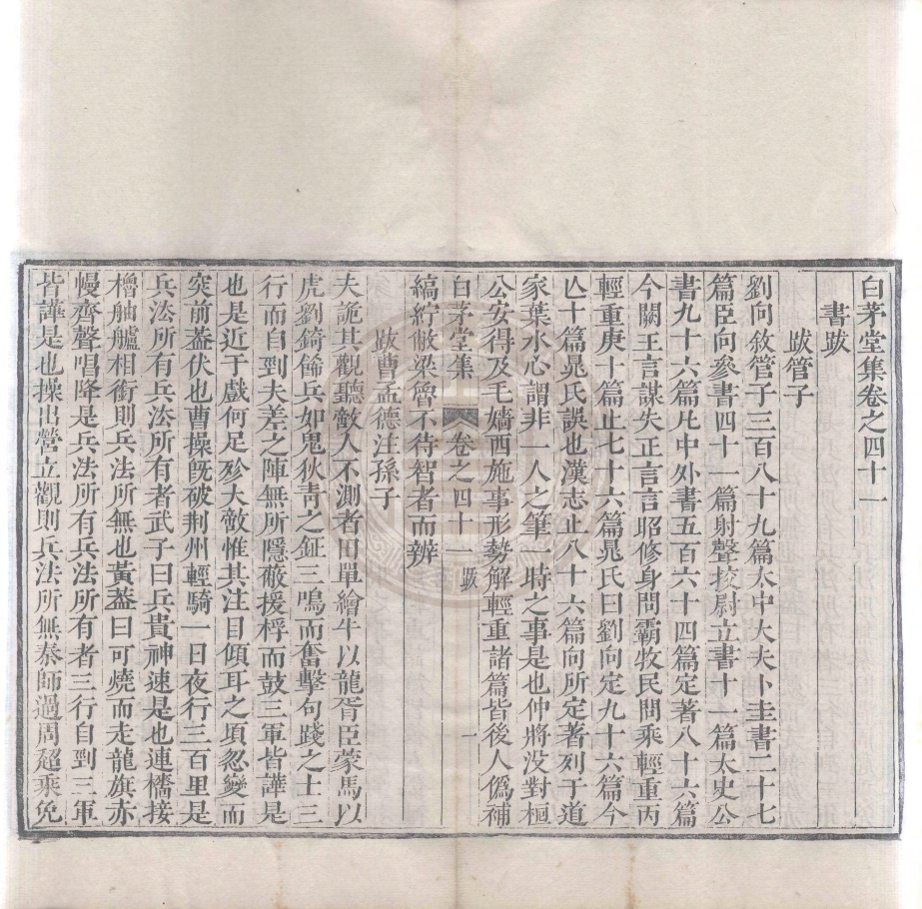 白茅堂集卷之四十一
書跋
跋管子
劉向敘管子三百八十九篇太中大夫卜圭書二十七
篇臣向參書四十一篇射聲挍尉立書十一篇太史公
書九十六篇凡中外書五百六十四篇定著八十六篇
今闕王言謀失正言言昭修身問霸牧民問乘輕重丙
輕重庚十篇止七十六篇晁氏曰劉向定九十六篇今
亾十篇晁氏誤也漢志止八十六篇向所定著列于道
家葉水心謂非一人之筆一時之事是也仲將没對桓
公安得及毛嬙西施事形勢解輕重諸篇皆後人僞補
白茅堂集 卷之四十一 跋 一
縞紵散梁魯不待智者而辨
跋曹孟德注孫子
夫詭其觀聽敵人不測者田單繪牛以龍胥臣蒙馬以
虎劉錡餙兵如鬼狄靑之鉦三鳴而奮擊句踐之士三
行而自剄夫差之陣無所隱蔽援桴而鼓三軍皆譁是
也是近于戲何足殄大敵惟其注目傾耳之頃忽變而
突前葢伏也曹操旣破荆州輕騎一日夜行三百里是
兵法所有兵法所有者武子曰兵貴神速是也連檣接
櫓舳艫相銜則兵法所無也黃葢曰可燒而走龍旗赤
幔齊聲唱降是兵法所有兵法所有者三行自剄三軍
皆譁是也操出營立觀則兵法所無秦師過周超乘免